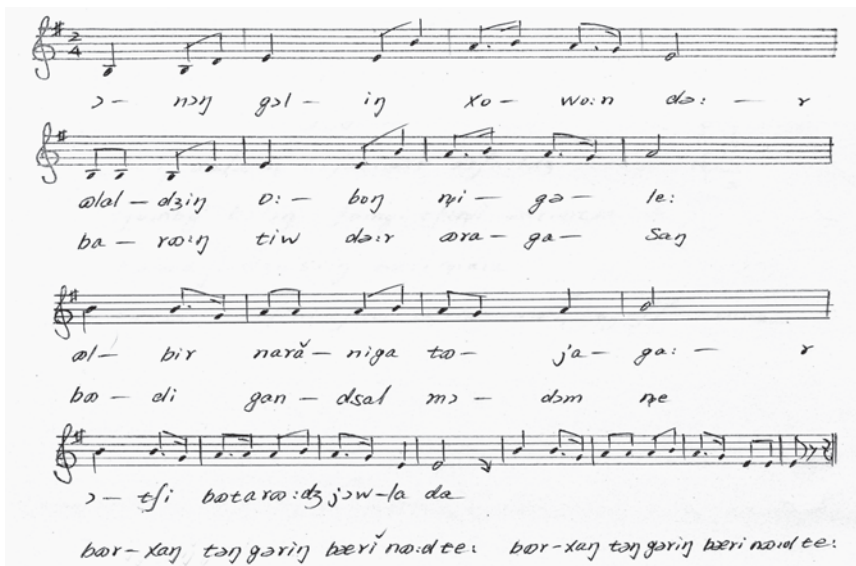 2/4
ɔ – nɔŋ gɔl – iŋ xo – wo:n də: – r
ɷlal – dʒiŋ ʊ: – boŋ ɲi – gə – le:
ba – rɷ:ŋ tiw də:r ɷra – ga – saŋ
ɷl – bir narǎ – niga tɷ – ja – ga: – r
bɷ – di gan – dsal mɔ – dɔm ɲe
ɔ – tʃi bɷtarɷ:dʒ jɔw – la da
bɷr – xaŋ təŋ gəriŋ bærǐ nɷ:d te: bɷr – xaŋ təŋ gəriŋ bæri nɷ:d te: